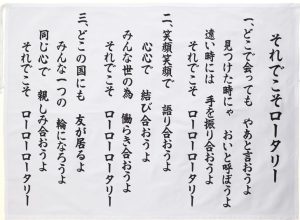 それでこそロータリー
一、どこで会っても やあと言おうよ
見つけた時にゃ おいと呼ぼうよ
遠い時には 手を振り合おうよ
それでこそ ローローロータリー
二、笑顔笑顔で 語り合おうよ
心心で 結び合おうよ
みんな世の為 働らき合おうよ
それでこそ ローローロータリー
三、どこの国にも 友が居るよ
みんな一つの 輪になろうよ
同じ心で 親しみ合おうよ
それでこそ ローローロータリー